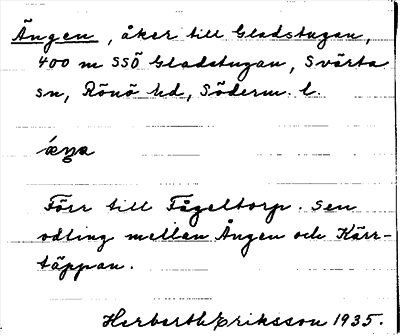 Ängen, åker till Gladstugan,
400 m SSÖ Gladstugan, Svärta
sn, Rönö hd, Söderm. l.
Förr till Fågeltorp. Sen
odling mellan Ängen och Kärr-
täppan.
Herbert Eriksson 1935.